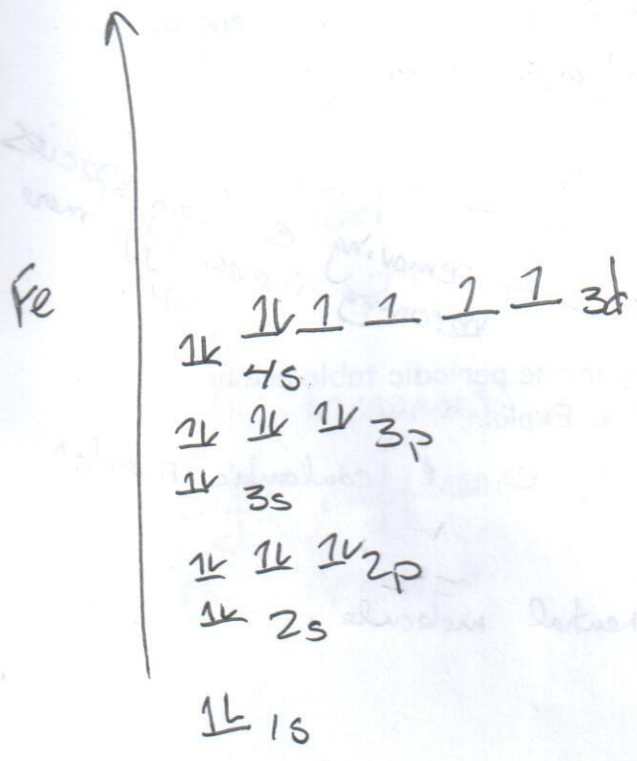 Fe
1L 1 1 1 1 3d
1L 4s
1L 1L 1L 3p
1L 3s
1L 1L 1L 2p
1L 2s
1L 1s